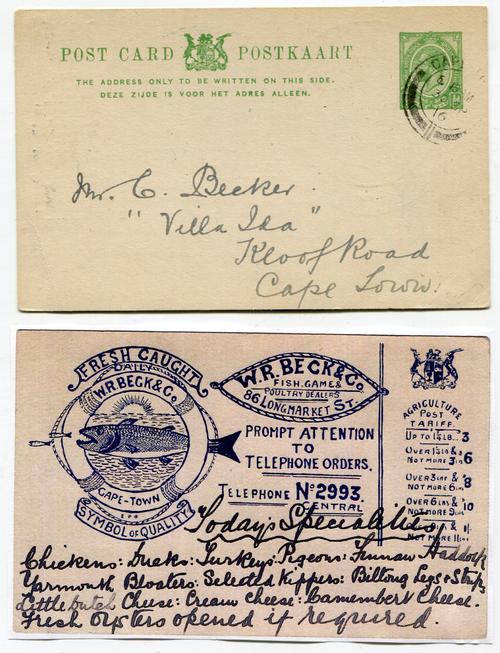 POST CARD POSTKAART
THE ADDRESS ONLY TO BE WRITTEN ON THIS SIDE.
DEZE ZIJDE IS VOOR HET ADRES ALLEEN.
16
Mr. C. Becker.
"Villa Ida"
Kloof Road
Cape Town.
FRESH CAUGHT
DAILY
W.R. BECK & Co
CAPE-TOWN
SYMBOL OF QUALITY
W.R. BECK & Co.
FISH. GAME &
POULTRY DEALERS
86 LONGMARKET ST.
PROMPT ATTENTION
TO
TELEPHONE ORDERS.
TELEPHONE No 2993.
CENTRAL
AGRICULTURE
POST
TARIFF.
UP TO 1½ LB.. 3
OVER 1½ LB &
NOT MORE 3 LB 6
OVER 3 LBS &
NOT MORE 6 LBS 8
OVER 6 LBS &
NOT MORE 9 LBS 10
NOT MORE 11 LBS
Today's Specialities.
Chickens: Ducks: Turkeys: Pigeons: Finnan Haddock
Yarmouth Bloaters: Selected Kippers: Biltong Legs & Strips
Little Dutch Cheese: Cream Cheese: Camembert Cheese.
Fresh Oysters opened if required.